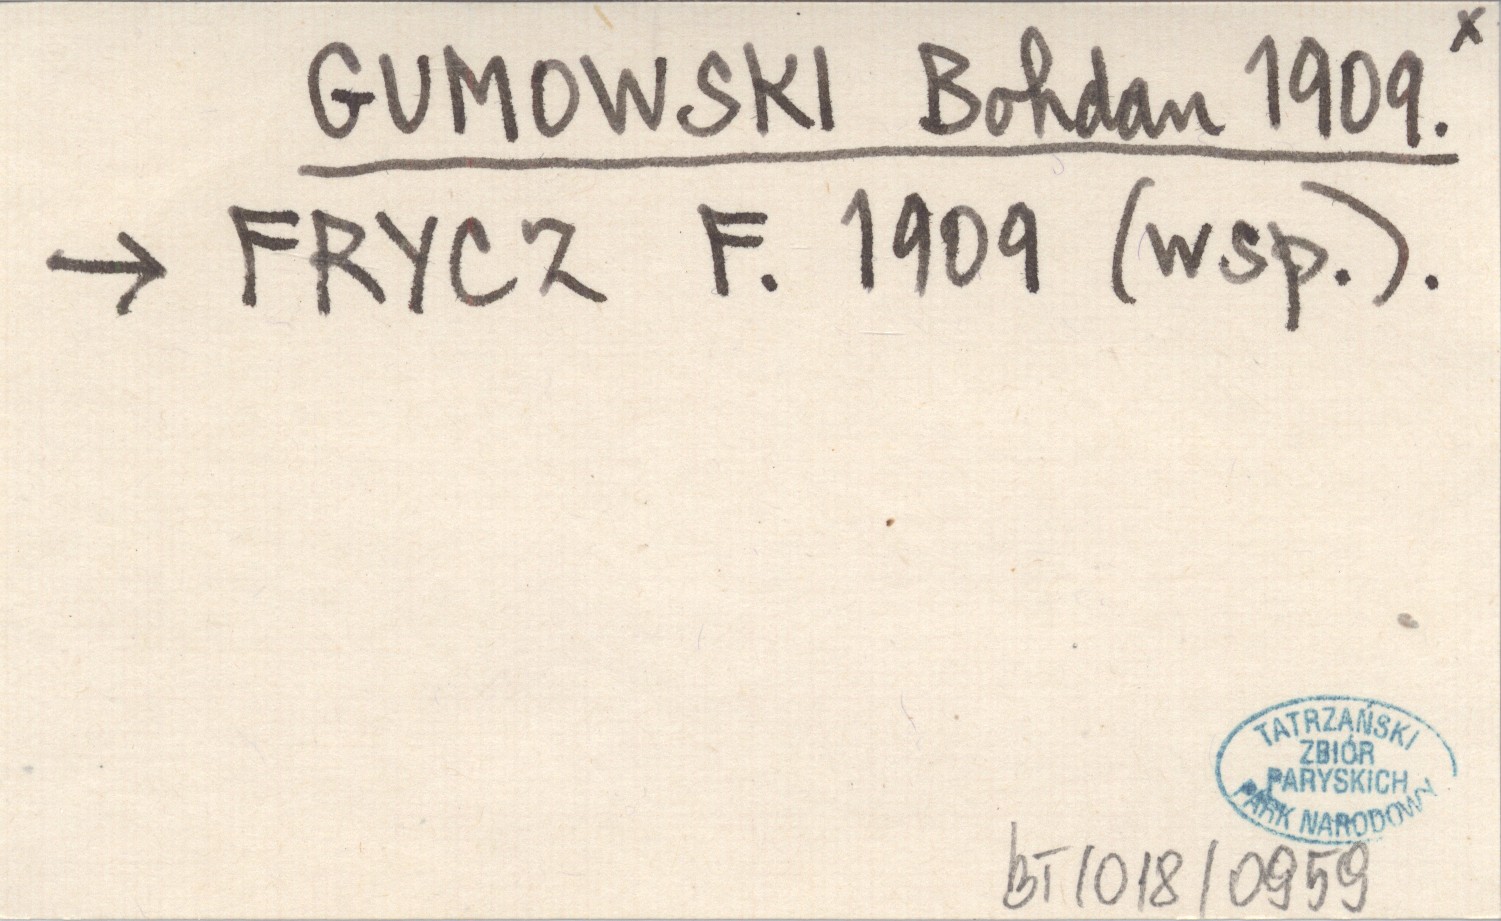 GUMOWSKI Bohdan 1909.x
→ FRYCZ F. 1909 (wsp.).
TATRZAŃSKI
ZBIÓR
PARYSKICH
PARK NARODOWY
BT/018/0959